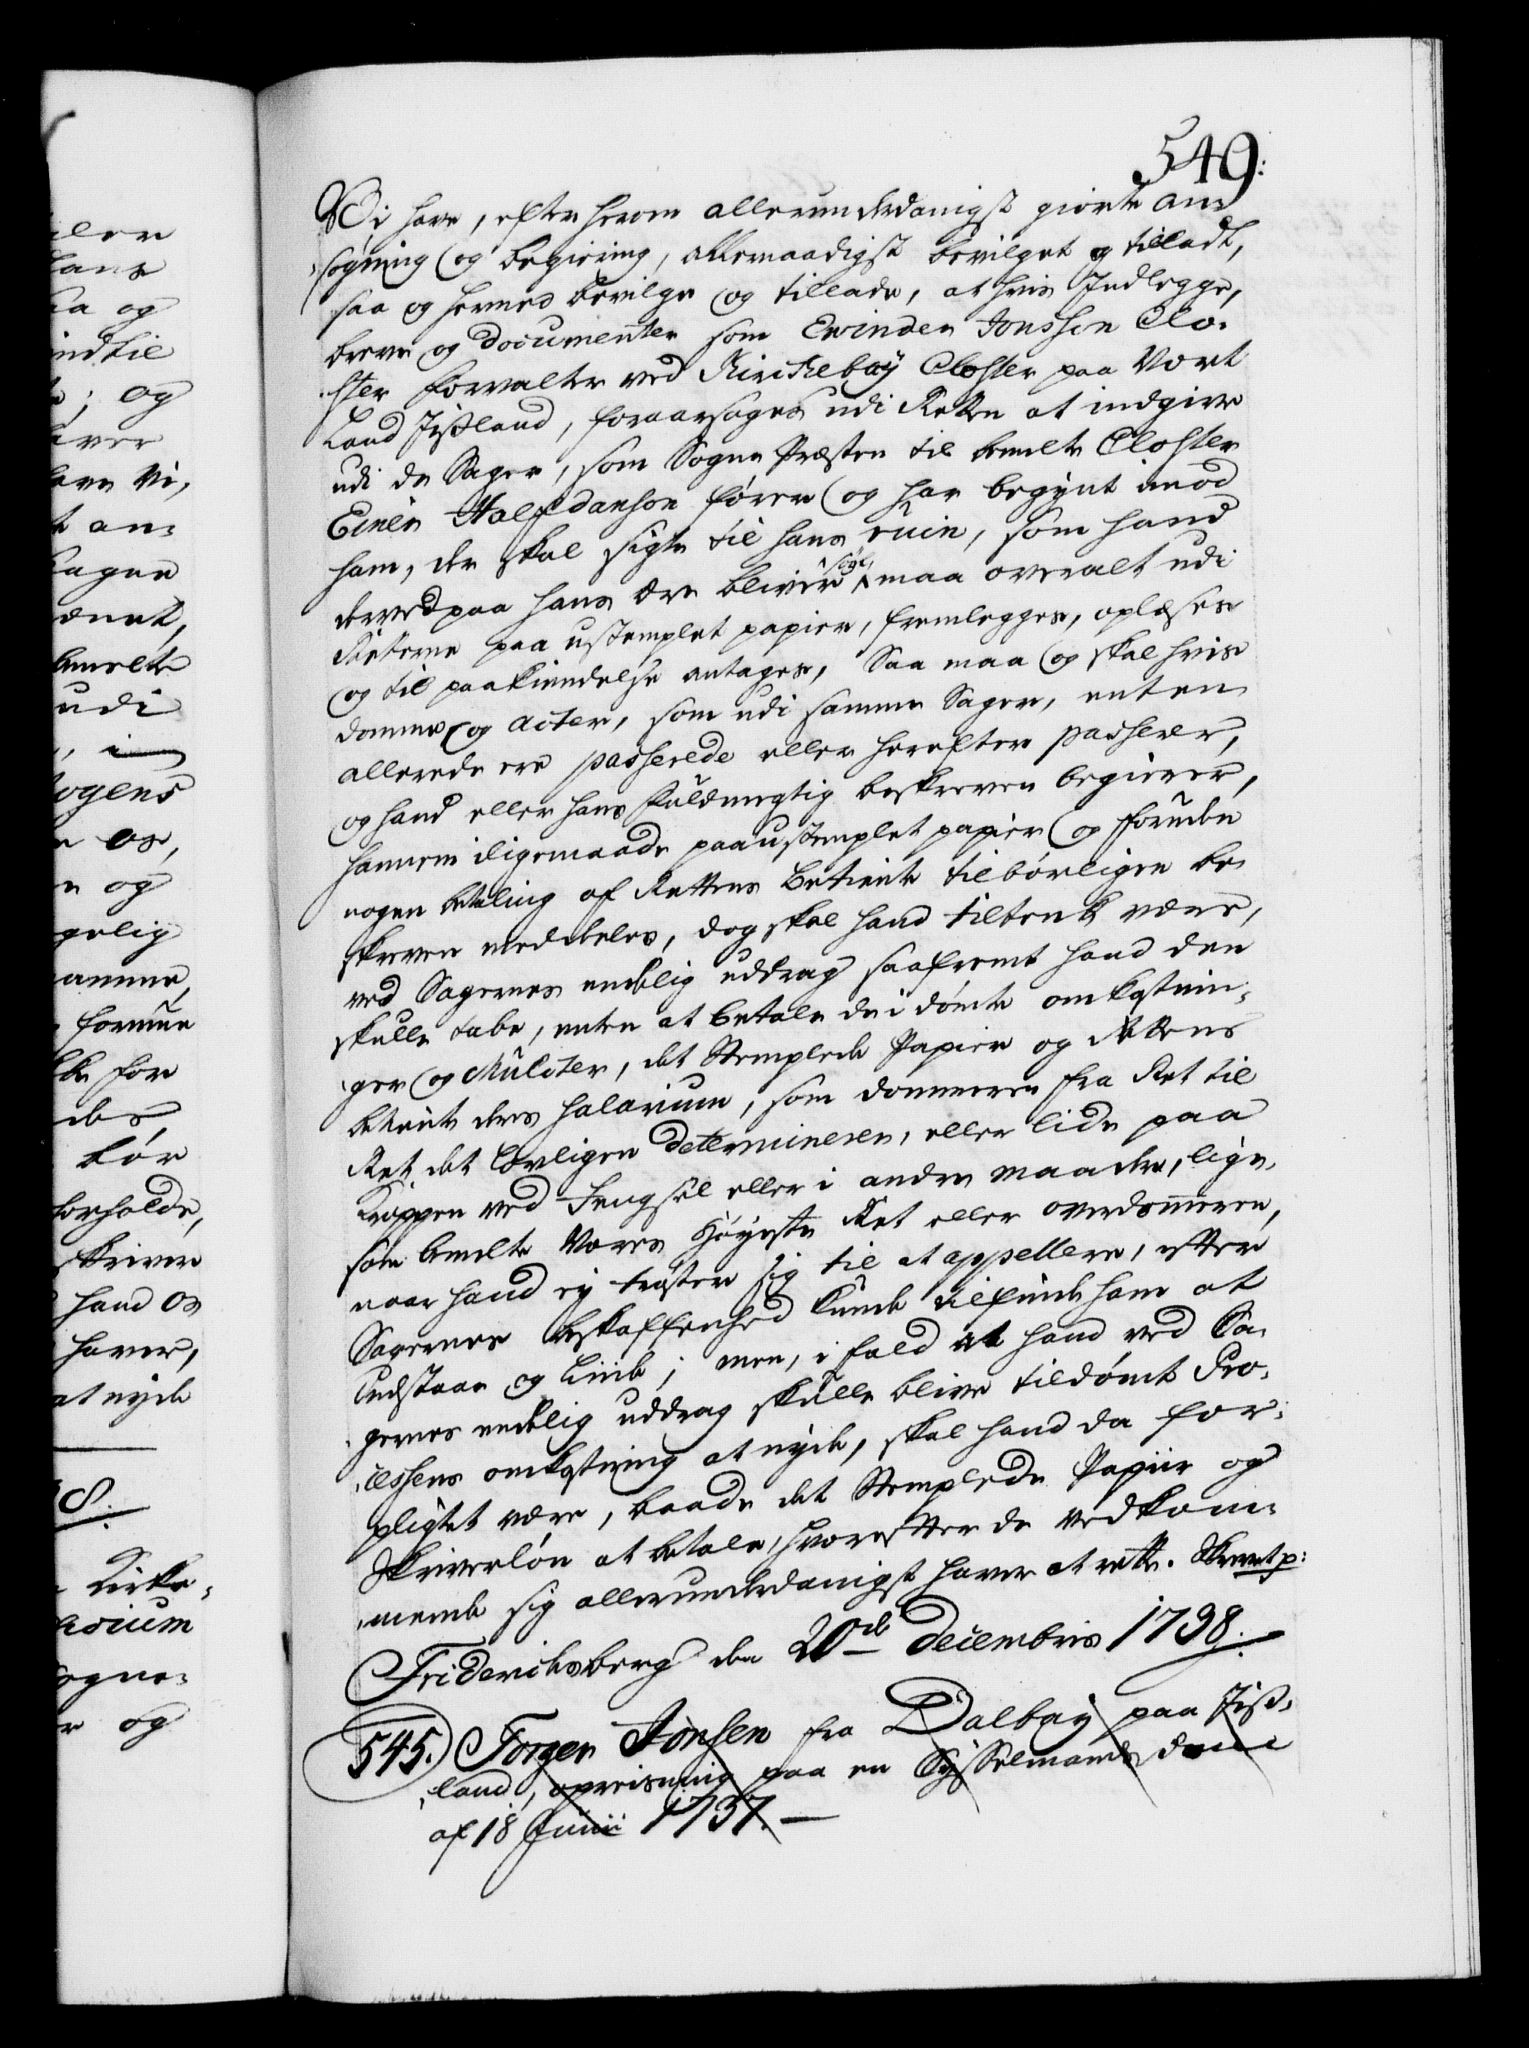 549:
Vi have, efter herom allerunderdanigst giorte an¬
søgning og begiering, allernaadigst bevilget og tilladt,
saa og hermed bevilge og tillade, at hvis Indlegge,
breve og documenter som Evinder Jonsson Clo¬
ster forvalter ved Kirchebøy Closter paa Vort
Land Jißland, foraarsages udi Retten at indgive
udi de Sager, som Sogne Præsten til bemelte Closter
Einer Halfdanson fører og har begynt imod
ham, der skal sigte til hans ruin, som hand
derved paa hans ære bliver søgt, maa overalt udi
Retterne paa ustemplet papier, fremlegges, oplæses
og til paakiendelse antages, Saa maa og skal hvis
domme og acter, som udi samme Sager, enten
allerede ere passerede eller herefter passerer,
og hand eller hans Fuldmegtig beskreven begierer,
hannem iligemaade paa ustemplet papier og foruden
nogen betaling af Rettens betiente tilbørligen be¬
skreven meddeles, dog skal hand tiltenkt være,
ved Sagernes endelig uddrag saafremt hand den
skulle tabe, enten at betale de idømte omkostnin¬
ger og Mulcter, det Stemplede Papier og Rettens
betientes deres Salarium, som dommeren fra Ret til
Ret det lovligen determinerer, eller lide paa
Kroppen ved Fengsel eller i andre maader, lige¬
som bemelte Vores Høyeste Ret eller overdommeren,
naar hand ey trøster sig til at appellere, efter
Sagernes beskaffenhed kunde tilfinde ham at
undstaae og liide; men, i fald at hand ved Sa¬
gernes endelig uddrag skulle blive tildømt Pro¬
cessens omkostning at nyde, skal hand da for¬
pligtet være, baade det Stemplede Papiir og
Skriverløn at betale, hvorefter de vedkom¬
mende sig allerunderdanigst haver at rette. Skrevet p:
Friderichsberg den 20de Decembris 1738.
545.) Torger Jonsen fra Dalbay paa Jiß¬
land, opreisning paa en Sysselmands dom
af 18 Junii 1737.